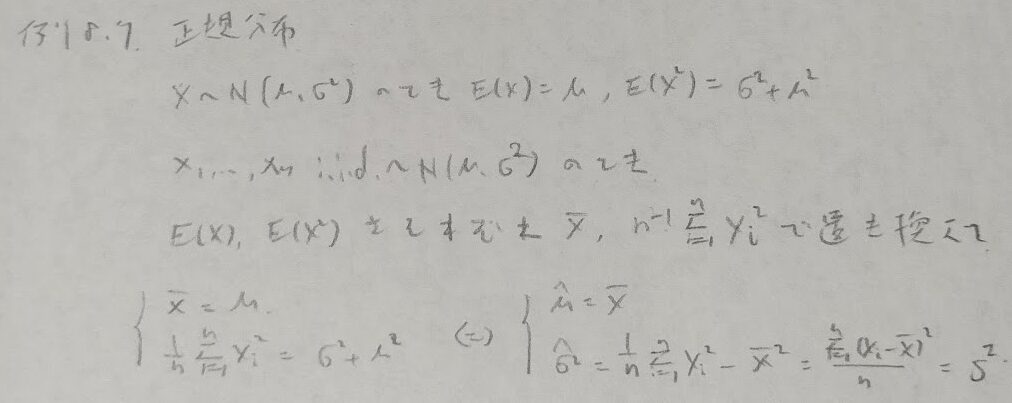 例8.7. 正規分布
X ~ N(μ, σ²) のとき E(X) = μ, E(X²) = σ² + μ²
X₁, ..., Xₙ i.i.d. ~ N(μ, σ²) のとき
E(X), E(X²) をそれぞれ X̄, n⁻¹ Σᵢ₌₁ⁿ Xᵢ² で置き換えて
{ X̄ = μ. (⇔) { μ̂ = X̄
1/n Σᵢ₌₁ⁿ Xᵢ² = σ² + μ² σ̂² = 1/n Σᵢ₌₁ⁿ Xᵢ² − X̄² = Σᵢ₌₁ⁿ (Xᵢ − X̄)² / n = S².